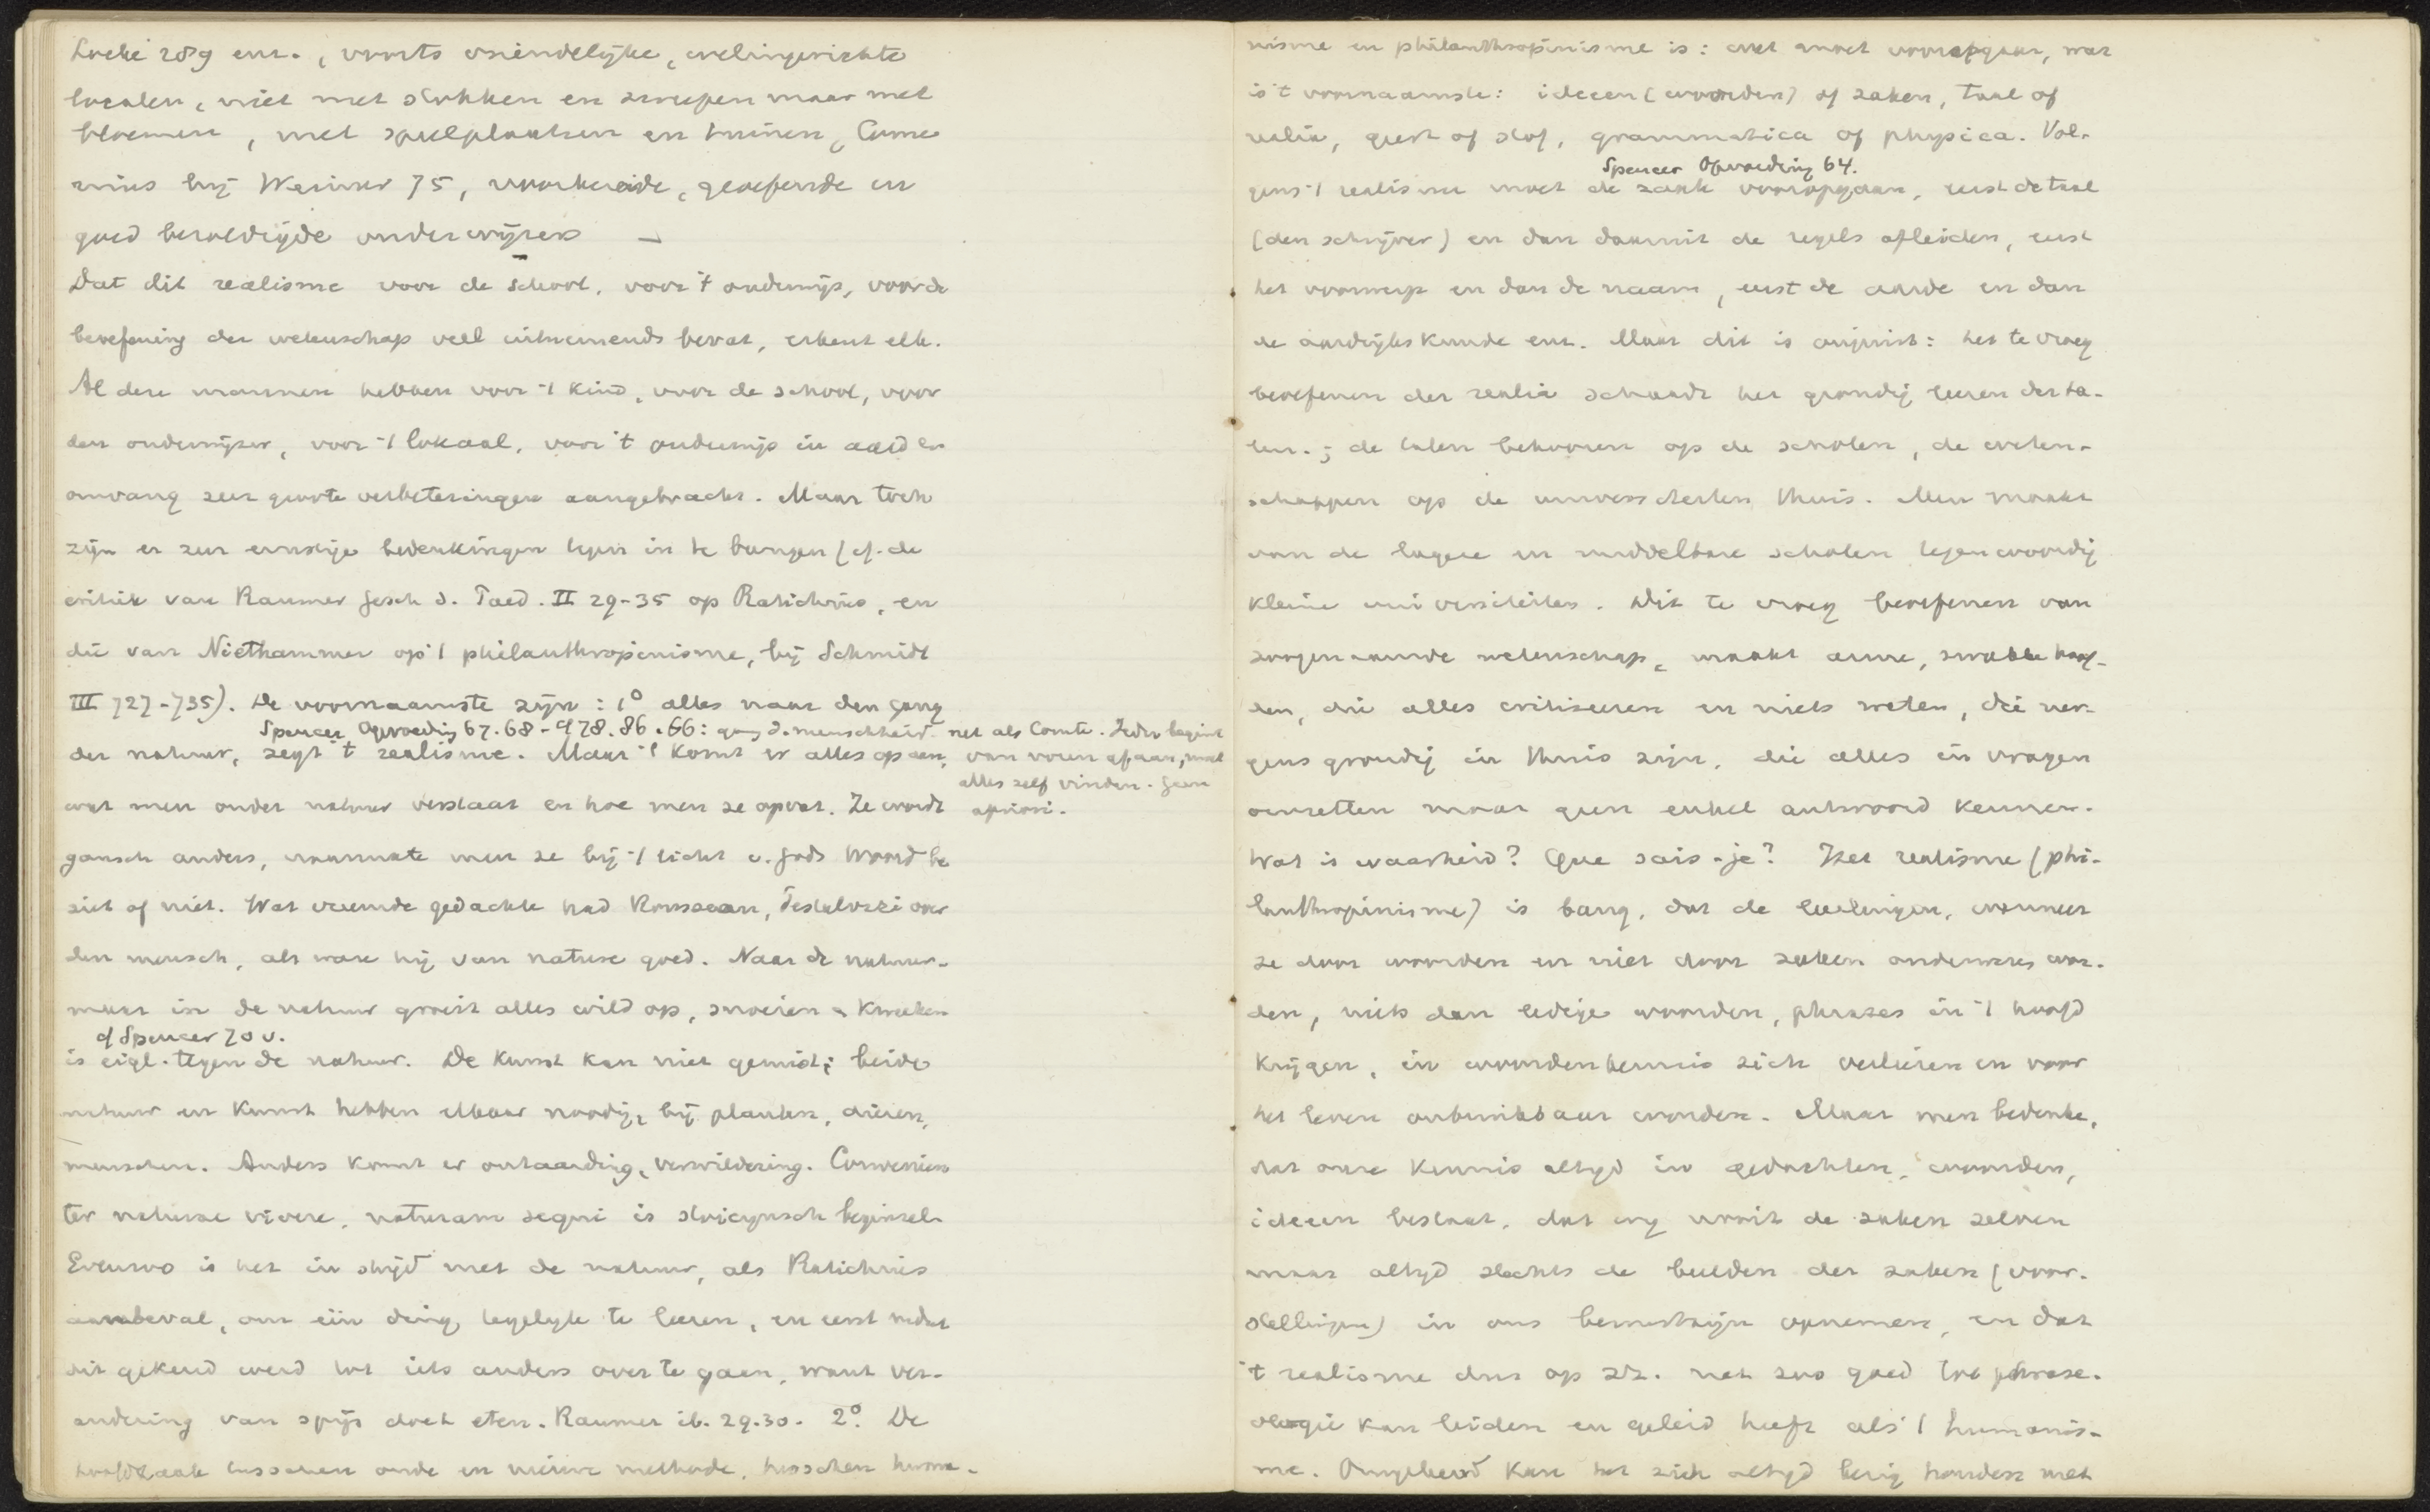 Locke 289 enz., voorts vriendelijke, welingerichte
localen, niet met stokken en zweepen maar met
bloemen, met speelplaatsen en tuinen, Come-
nius bij Weimer 75, voorbereide, geoefende en
goed bezoldigde onderwijzers —
Dat dit realisme voor de school, voor 't onderwijs, voor de
beoefening der wetenschap veel uitnemends bevat, erkent elk.
Al deze mannen hebben voor 't kind, voor de school, voor
den onderwijzer, voor 't lokaal, voor 't onderwijs in aard en
omvang zeer groote verbeteringen aangebracht. Maar toch
zijn er zeer ernstige bedenkingen tegen in te brengen (cf. de
critiek van Raumer Gesch d. Paed. II 29-35 op Ratichius, en
die van Niethammer op 't philanthropinisme, bij Schmidt
III 727-735). De voornaamste zijn: 1º alles naar den gang
Spencer Opvoeding 67.68-978.86.66: gang d. menschheid. net als Comte. Ieder begint
der natuur, zegt 't realisme. Maar 't komt er alles op aan, van voren af aan, moet
alles zelf vinden. Geen
wat men onder natuur verstaat en hoe men ze opvat. Ze wordt apriori.
gansch anders, naarmate men ze bij 't licht v. Gods Woord be
ziet of niet. Wat vreemde gedachte had Rousseau, Pestalozzi over
den mensch, als ware hij van nature goed. Naar de natuur-
maar in de natuur groeit alles wild op, snoeien & kweeken
cf Spencer 70 v.
is eigl. tegen de natuur. De kunst kan niet gemist; beide
natuur en kunst hebben elkaar noodig, bij planten, dieren,
menschen. Anders komt er ontaarding, verwildering. Convenien
ter naturae vivere, naturam sequi is stoicynsch beginsel.
Evenzoo is het in strijd met de natuur, als Ratichius
aanbeval, om één ding tegelijk te leeren, en eerst nadat
dit gekend werd tot iets anders over te gaan, want ver-
andering van spijs doet eten. Raumer ib. 29.30. 2º. De
hoofdzaak tusschen oude en nieuwe methode, tusschen huma-
nisme en philanthropinisme is: wat moet vooropgaan, wat
is 't voornaamste: ideeen (woorden) of zaken, taal of
realia, geest of stof, grammatica of physica. Vol-
Spencer Opvoeding 64.
gens 't realisme moet de zaak vooropgaan, eerst de taal
(den schrijver) en dan daaruit de regels afleiden, eerst
het voorwerp en dan de naam, eerst de aarde en dan
de aardrijkskunde enz. Maar dit is onjuist: het te vroeg
beoefenen der realia schaadt het grondig leeren der ta-
len.; de talen behooren op de scholen, de weten-
schappen op de universiteiten thuis. Men maakt
van de lagere en middelbare scholen tegenwoordig
kleine universiteiten. Dit te vroeg beoefenen van
zoogenaamde wetenschap, maakt arme, zwakke hoof-
den, die alles critiseeren en niets weten, die ner-
gens grondig in thuis zijn, die alles in vragen
omzetten maar geen enkel antwoord kennen.
Wat is waarheid? Que sais-je? Het realisme (phi-
lanthropinisme) is bang, dat de leerlingen, wanneer
ze door woorden en niet door zaken onderwezen wor-
den, niets dan ledige woorden, phrases in 't hoofd
krijgen, in woordenkennis zich verliezen en voor
het leven onbruikbaar worden. Maar men bedenke,
dat onze kennis altijd in gedachten, woorden,
ideeen bestaat, dat wij nooit de zaken zelven
maar altijd slechts de beelden der zaken (voor-
stellingen) in ons bewustzijn opnemen, en dat
't realisme dus op z'n. net zoo goed tot phrase-
ologie kan leiden en geleid heeft als 't humanis-
me. Omgekeerd kan het zich altijd bezig houden met